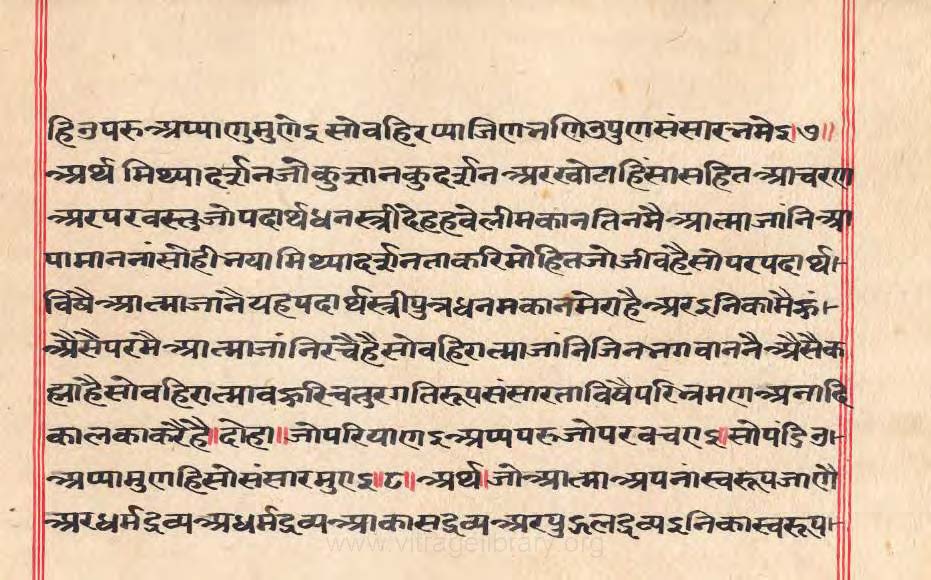 हिउ परु अप्पा ण मुणेइ सो वहिरप्पा जिण भणिउ पुण संसार भमेइ॥७॥
अर्थ मिथ्यादर्शन जो कुज्ञान कुदर्शन अर खोटा हिंसासहित आचरण
अर परवस्तु जो पदार्थ धन स्त्री देह हवेली मकांन तिनमै आत्मा जांनि आ
पा माननां सो ही नया मिथ्यादर्शन ता करि मोहित जो जीव है सो परपदार्थ
विषै आत्मा जानै यह पदार्थ स्त्री पुत्र धन मकान मेरा है अर इनिका मै हूं
अैसै पर मै आत्मा जांनि रचै है सो वहिरात्मा जांनि जिन भगवान नै अैसै क
ह्या है सो वहिरात्मा वहुरि चतुरगतिरूप संसार ता विषै परिभ्रमण अनादि
काल का करै है॥दोहा॥जो परियाणइ अप्प परु जो परव चएइ॥सो पंडिउ
अप्पा मुणहि सो संसार मुएइ॥८॥अर्थ॥जो आत्मा अपनां स्वरूप जाणै
अर धर्मद्रव्य अधर्मद्रव्य आकासद्रव्य अर पुद्गलद्रव्य इनिका स्वरूप
www.vitragelibrary.org